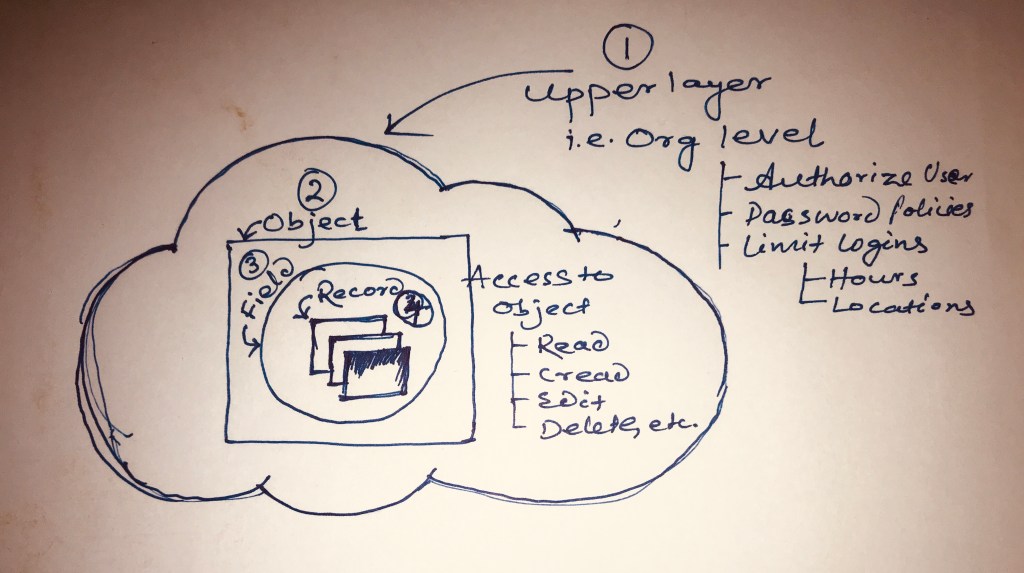 1
Upper layer
i.e. Org level
Authorize User
Password Policies
Limit Logins
Hours
Locations
2
Object
3
Field
Record
4
Access to
Object
Read
Cread
Edit
Delete, etc.